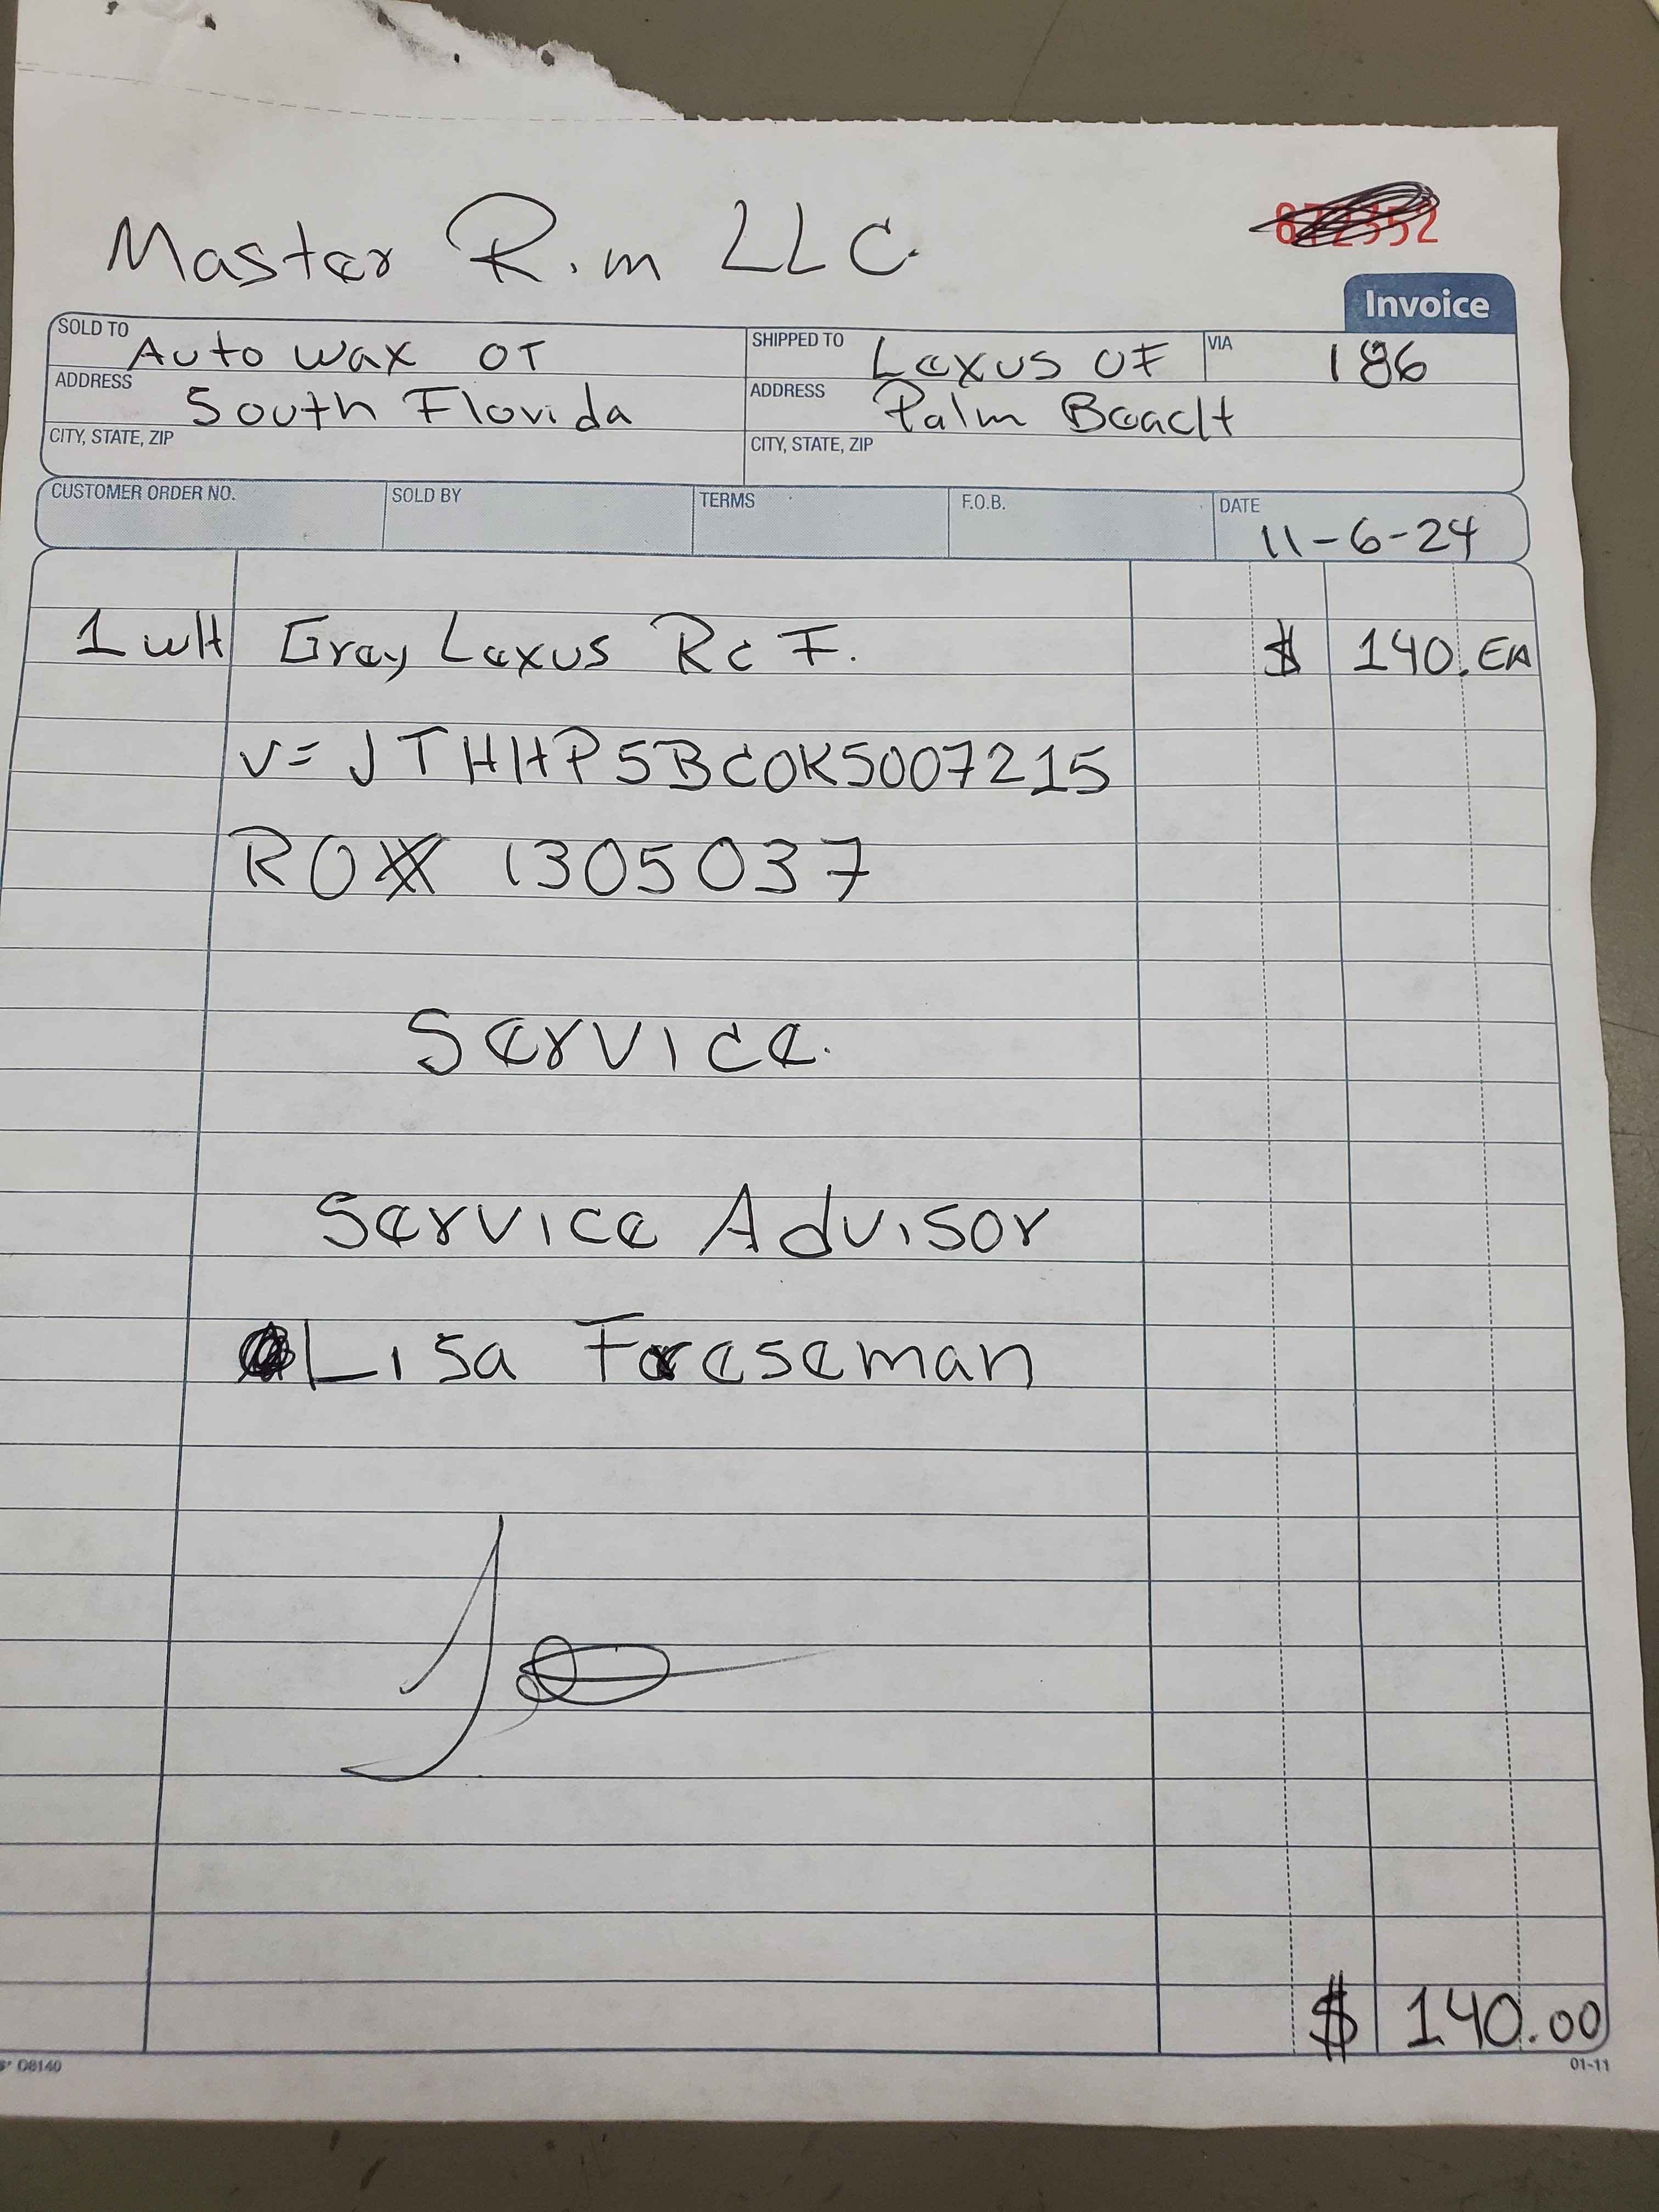 Master Rim LLC.
Invoice
SOLD TO Auto wax OF
SHIPPED TO Lexus OF
VIA 186
ADDRESS South Florida
ADDRESS Palm Beach
CITY, STATE, ZIP
CITY, STATE, ZIP
CUSTOMER ORDER NO. SOLD BY TERMS F.O.B. DATE 11-6-24
1 wH Gray Lexus Rc F. $ 140. EA
V= JTHHP5BC0K5007215
RO# 1305037
Service.
Service Advisor
Lisa Freseman
$ 140.00
D8140 01-11